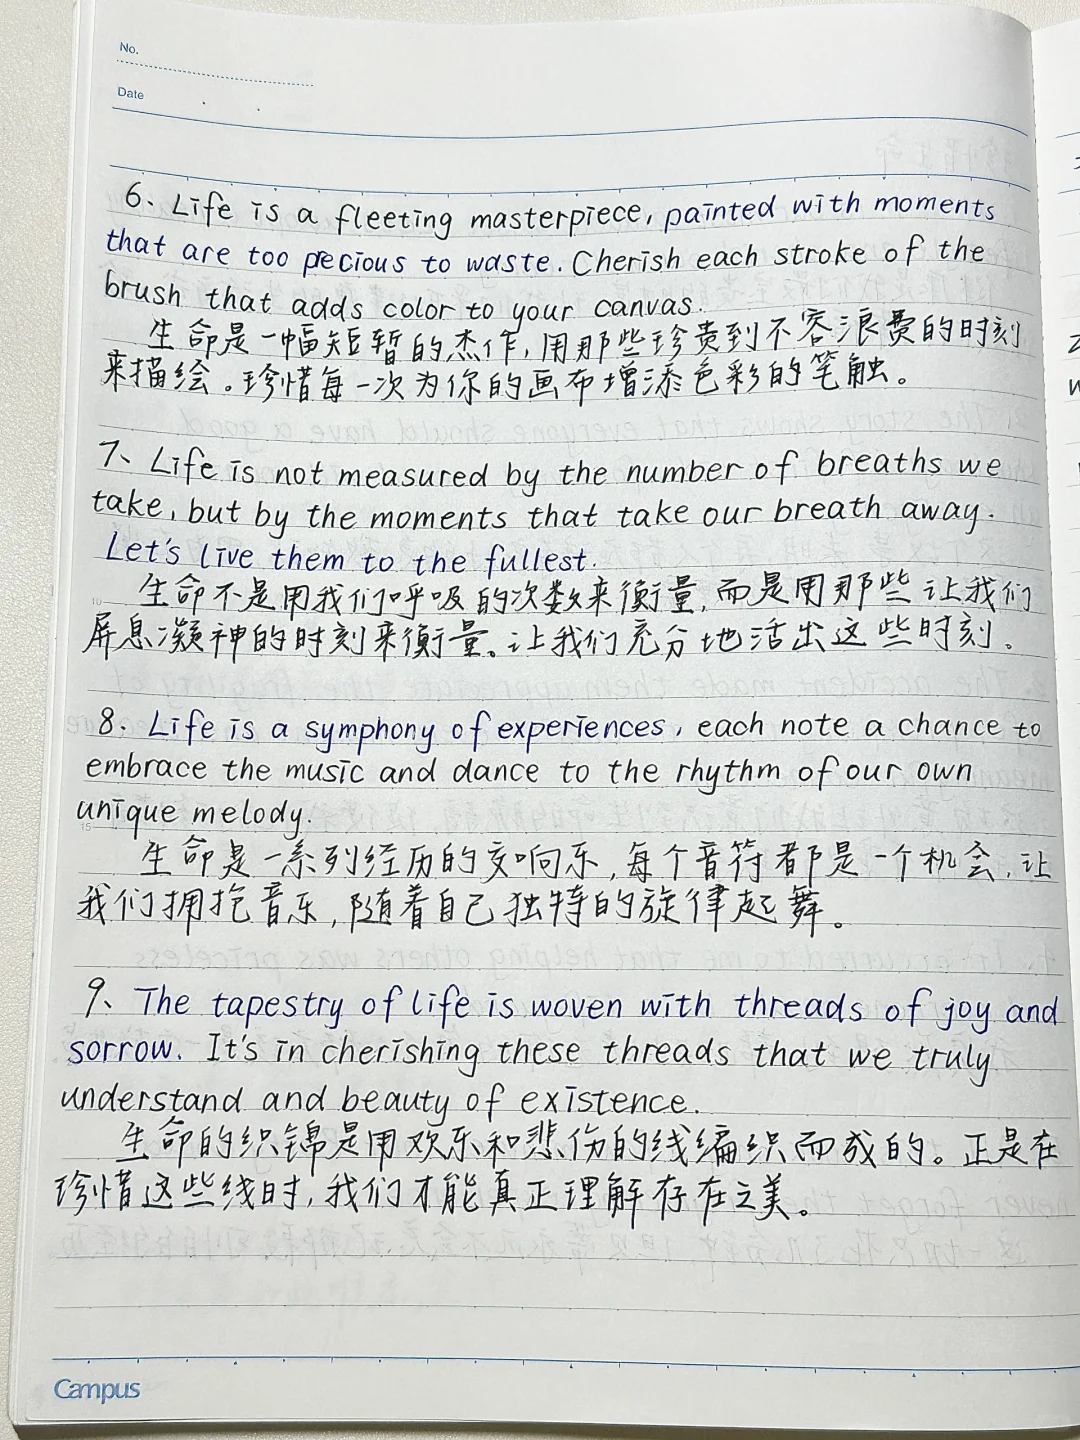 No.
Date
6、Life is a fleeting masterpiece, painted with moments
that are too precious to waste. Cherish each stroke of the
brush that adds color to your canvas.
生命是一幅短暂的杰作,用那些珍贵到不容浪费的时刻
来描绘。珍惜每一次为你的画布增添色彩的笔触。
7、Life is not measured by the number of breaths we
take, but by the moments that take our breath away.
Let's live them to the fullest.
生命不是用我们呼吸的次数来衡量,而是用那些让我们
屏息凝神的时刻来衡量。让我们充分地活出这些时刻。
8、Life is a symphony of experiences, each note a chance to
embrace the music and dance to the rhythm of our own
unique melody.
生命是一系列经历的交响乐,每个音符都是一个机会,让
我们拥抱音乐,随着自己独特的旋律起舞。
9、The tapestry of life is woven with threads of joy and
sorrow. It's in cherishing these threads that we truly
understand and beauty of existence.
生命的织锦是用欢乐和悲伤的线编织而成的。正是在
珍惜这些线时,我们才能真正理解存在之美。
Campus